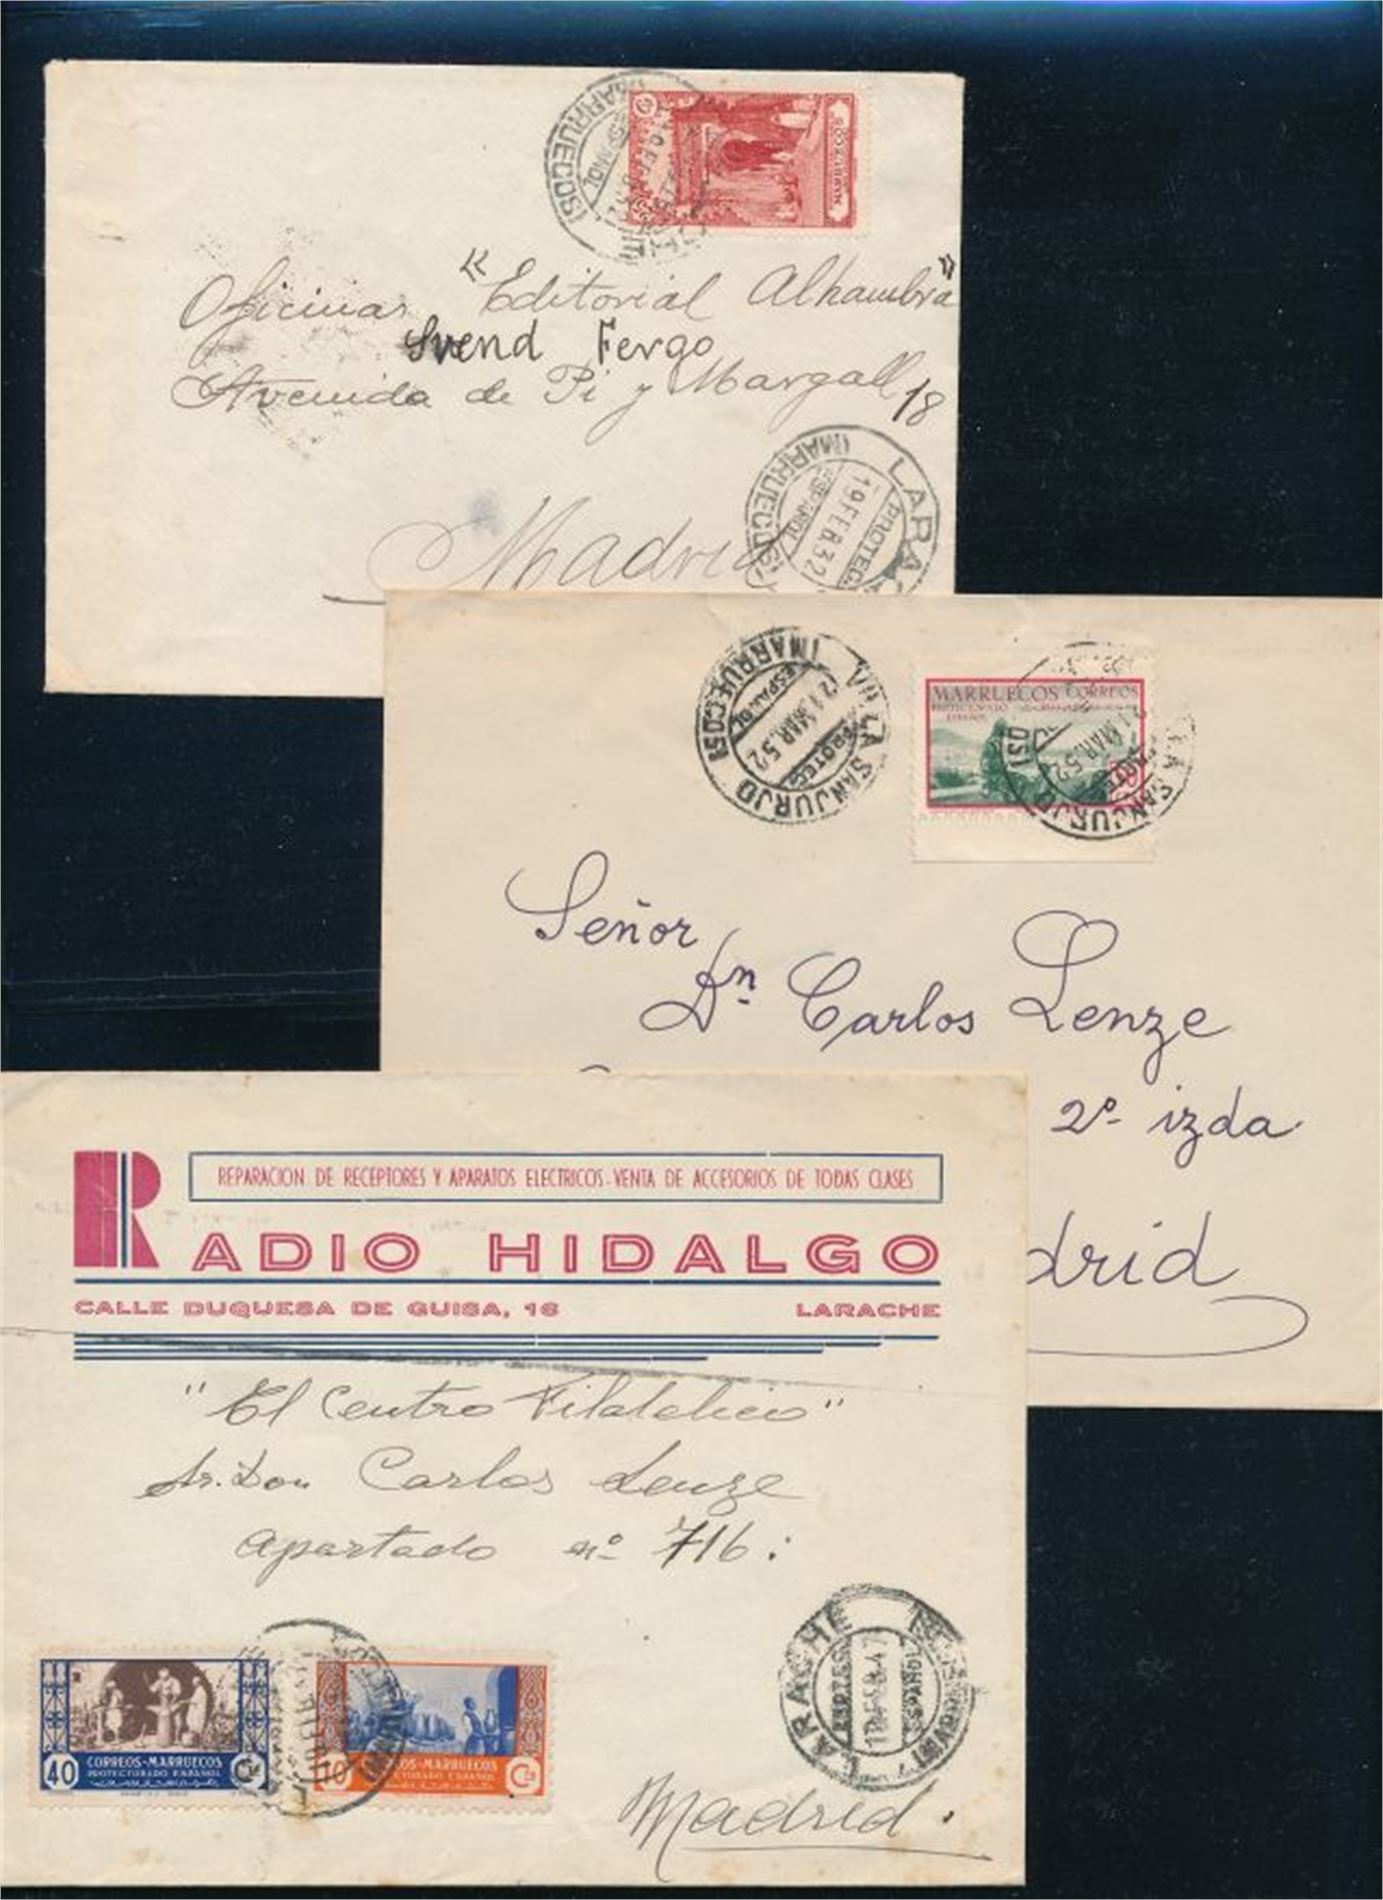 « Editorial Alhambra »
Oficinas
Svend Fergo
Avenida de Pi y Margall 18
Madrid
LARA
PROTEC.
19 FEB. 32
ESPAÑOL
(MARRUECOS)
(MARRUECOS)
ESPAÑOL
VILLA SANJURJO
PROTEC.
21 MAR. 52
ESPAÑOL
(MARRUECOS)
MARRUECOS CORREOS
PROTECTORADO
ESPAÑOL
21 MAR. 52
SANJURJO
Señor
Dn Carlos Lenze
2º izda
drid
R
REPARACION DE RECEPTORES Y APARATOS ELECTRICOS - VENTA DE ACCESORIOS DE TODAS CLASES
RADIO HIDALGO
CALLE DUQUESA DE GUISA, 16 LARACHE
"El Centro Filatelico"
Sr. Don Carlos Lenze
apartado nº 716:
LARACHE
ESPAÑOL
CORREOS-MARRUECOS
PROTECTORADO ESPAÑOL
40 Cts
CORREOS-MARRUECOS
10 Cts
Madrid.